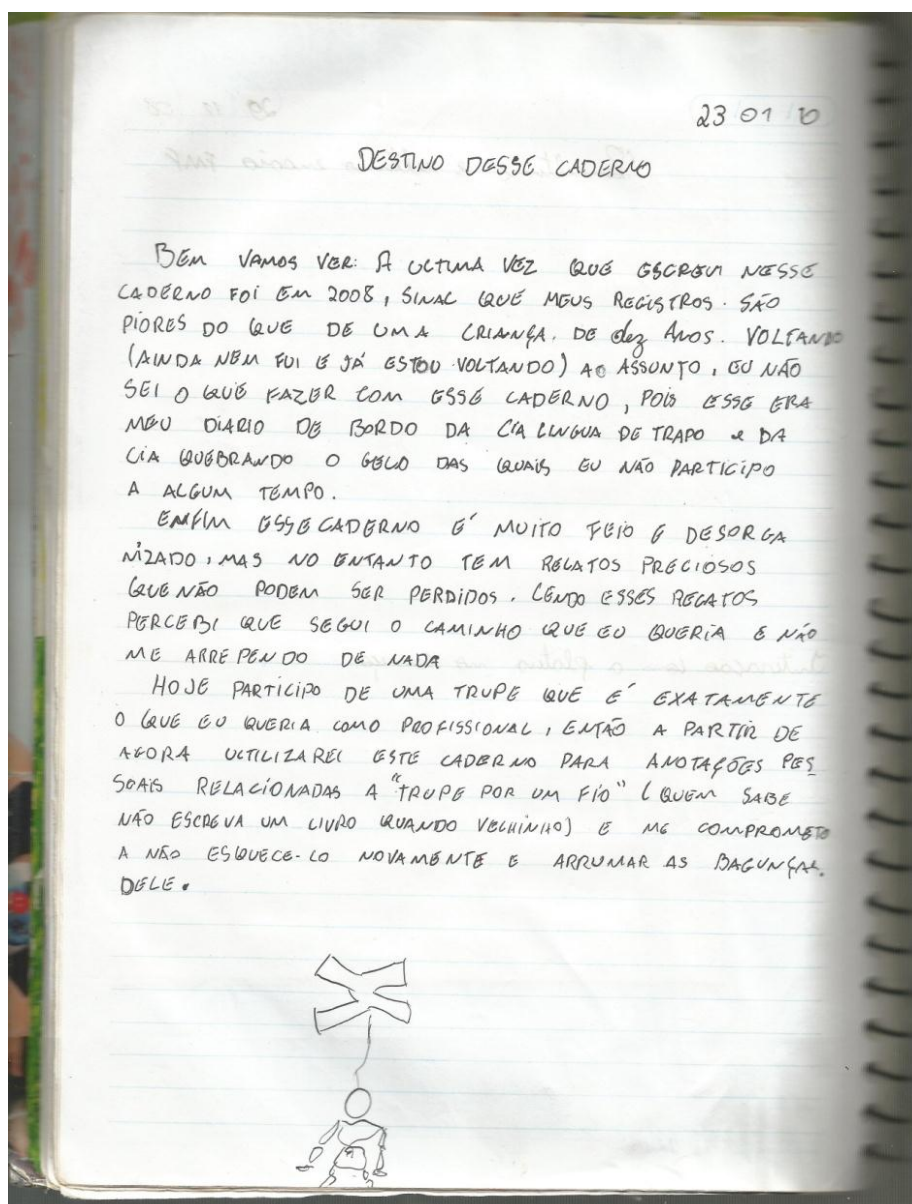 23 01 10
DESTINO DESSE CADERNO
BEM VAMOS VER: A ULTIMA VEZ QUE ESCREVI NESSE
CADERNO FOI EM 2008, SINAL QUE MEUS REGISTROS. SÃO
PIORES DO QUE DE UMA CRIANÇA. DE dez Anos. VOLTANDO
(AINDA NEM FUI E JÁ ESTOU VOLTANDO) AO ASSUNTO, EU NÃO
SEI O QUE FAZER COM ESSE CADERNO, POIS ESSE ERA
MEU DIARIO DE BORDO DA CIA LINGUA DE TRAPO e DA
CIA QUEBRANDO O GELO DAS QUAIS EU NÃO PARTICIPO
A ALGUM TEMPO.
ENFIM ESSE CADERNO E' MUITO FEIO E DESORGA
NIZADO, MAS NO ENTANTO TEM RELATOS PRECIOSOS
QUE NÃO PODEM SER PERDIDOS. LENDO ESSES RELATOS
PERCEBI QUE SEGUI O CAMINHO QUE EU QUERIA E NÃO
ME ARREPENDO DE NADA
HOJE PARTICIPO DE UMA TRUPE QUE E' EXATAMENTE
O QUE EU QUERIA COMO PROFISSIONAL, ENTÃO A PARTIR DE
AGORA ULTILIZAREI ESTE CADERNO PARA ANOTAÇÕES PES
SOAIS RELACIONADAS A "TRUPE POR UM FIO" (QUEM SABE
NÃO ESCREVA UM LIVRO QUANDO VELHINHO) E ME COMPROMETO
A NÃO ESQUECE-LO NOVAMENTE E ARRUMAR AS BAGUNÇAS.
DELE.